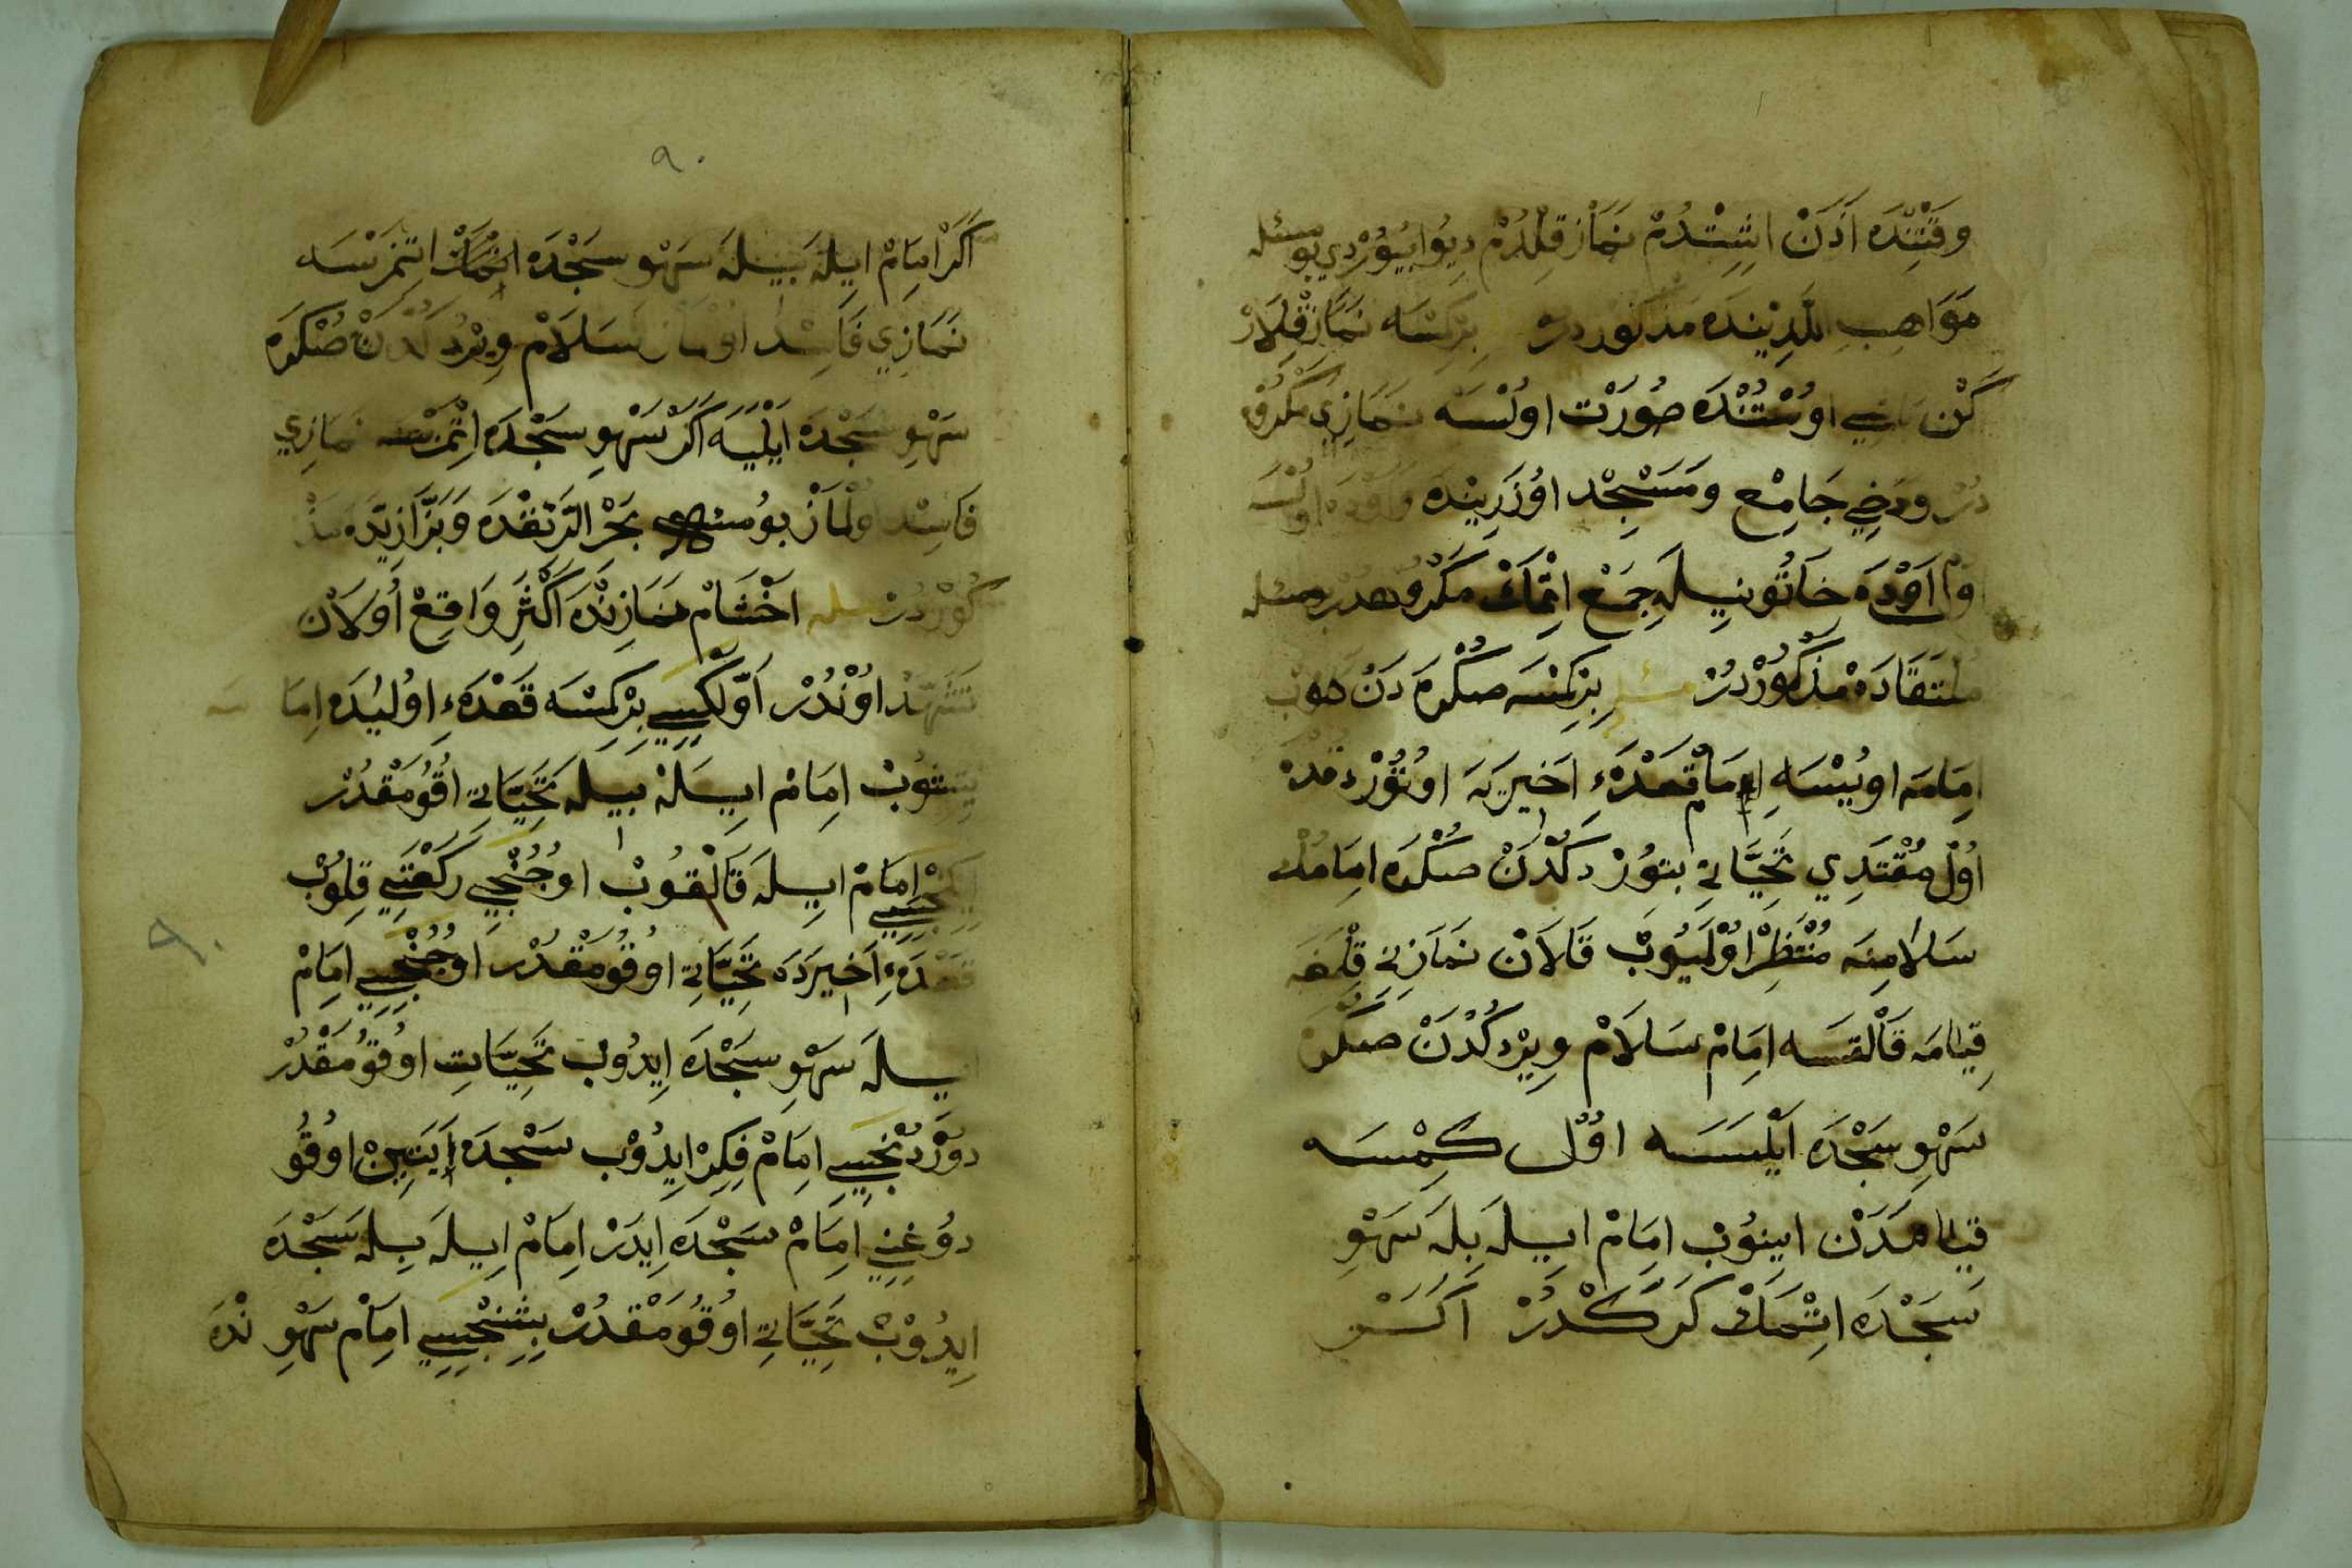 وَقْتِنْدَه اَذَنْ اشِتْدُمْ نَمَازْ قِلْدُرُمْ دِيُو بُيُوْرْدِي بو مسئله
مَوَاهِبِ اللَّدِنِيْنده مذكوردر بِرْكِمْسَه نَمَازْ قِلَارْ
كَنْ اوُسْتُنْدَه صُورَتْ اولْسَه نَمَازِي مَكْرُوهْ
دُرْ ودَخِي جَامِعْ وَمَسْجِدْ اوُزَرِينْده وَاوْدَه اولْسَه
اَوْدَه خَاتُونِيلَه جِمَعْ اتْمَكْ مَكْرُوهدُرْ مسئله
مُلْتَقَادَه مَذْكُورْدُرْ مسئله بِرْكِمْسَه صكْرَه دَنْ كلوب
اِمَامَه اويُسَه اِمَامْ قَعْدَهءِ اَخِيرَيَه اوتُوْرْدُقْدَه
اوُلْ مُقْتَدِي تَحِيَّاتِي بتوُرْدكْدَنْ صكْرَه امَامُكْ
سَلامِنَه مُنْتَظِرْ اوُلْمَيُوبْ قَالَانْ نَمَازِنِي قِلْمَغَه
قِيَامَه قَالْقسَه امَامْ سَلَامْ وِيرْدكْدَنْ صكْرَه
سَهْوِ سَجْدَه ايْلَسَه اوُلْ كِمْسَه
قِيَامدَنْ اينوُبْ اِمَامْ ايلَه بِلَه سَهْوِ
سَجْدَه اتْمَكْ كَرَكْدُرْ اَكَرْ
٩٠
اَكَرْ امَامْ ايلَه بيلَه سَهْو سَجْدَه اتْمَكْ اتْمَزْسَه
نَمَازِي فَاسِدْ اوُلْمَازْ سَلَامْ وِيرْدكْدَنْ صكْرَه
سَهْوِ سَجْدَه ايْلَيَه اَكَرْ سَهْوِ سَجْدَه اتْمَزْسَه نَمَازِي
فَاسِدْ اوُلْمَازْ بوُ مسئله بَحْرْ الرّئقْدَه وَبَزّازِيّدَه مَذْ
كُورْدُرْ مسله اخْشَامْ نَمَازِنْدَه اَكْثَرِ وَاقِعْ اُولَانْ
تَشَهّدْ اوُنْدُرْ اَوَّلْكِيسِي بِرْكِمْسَه قَعْدَهءِ اوُلَيدَه اِمَامَه
يِتِشوُبْ اِمَامْ ايلَه بيلَه تَحِيَّاتِي اُقُومَقْدُرْ
ايكنْجِيسِي اِمَامْ ايلَه قَالْقُوبْ اوُجُنْجِي رَكْعَتِي قِلوُبْ
قَعْدَهءِ اَخيرَدَه تَحِيَّاتِي اوُقُومَقْدُرْ اوُجُنْجِيسِي اِمَامْ
ايلَه سَهْوِ سَجْدَه اِيدُوبْ تَحِيَّاتِ اوُقُومَقْدُرْ
دوُرْدُنْجِيسِي اِمَامْ فِكِرْ ايِدُوْبْ سَجْدَه اَيَتِينْ اوُقُو
دوُغِنِي اِمَامْ سَجْدَه اِيدَرْ اِمَامْ اِيلَه بِلَه سَجْدَه
ايِدُوْبْ تَحِيَّاتِي اوُقُومَقْدُرْ بِشِنْجِيسِي اِمَامْ سَهْوِ نْدَه
٩٠